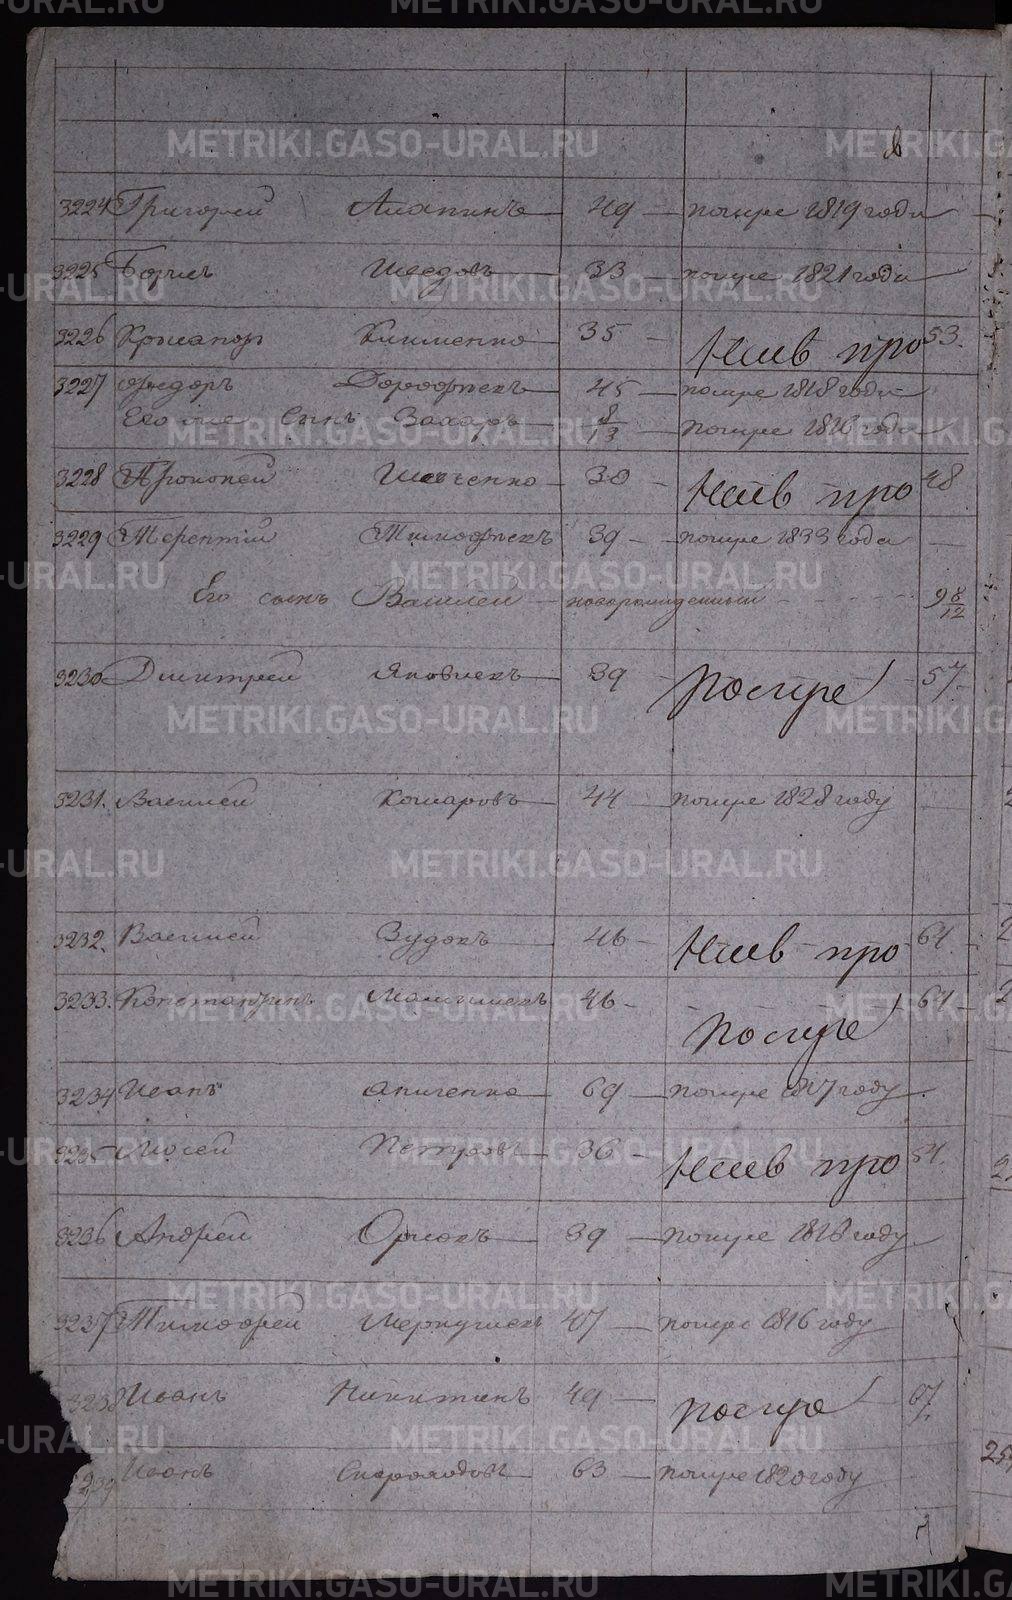 METRIKI.GASO-URAL.RU
3224 Григорей Лиапинъ 49 помре 1819 года
3225 Борисъ Шведовъ 33 помре 1821 года
3226 Крисанфъ Клименко 35 53
3227 Федоръ Дорофеевъ 45 помре 1818 года
Его же сынъ Захаръ 8/13 помре 1816 года
3228 Прокопей Шевченко 30 48
3229 Терентій Тимофеевъ 39 помре 1833 года
Его сынъ Василей новорожденный 9 8/12
3230 Дмитрей Яковлевъ 39 помре 57
3231. Василей Комаровъ 44 помре 1828 году
3232. Василей Зудовъ 46 64
3233. Константинъ 46 помре 64
3234 Иванъ Аниченко 69 помре 1817 году
3235 Мосей Петровъ 36 54
3236 Андрей Орловъ 39 помре 1818 году
3237 Тимофей Меркульевъ 47 помре 1816 году
3238 Иванъ Никитинъ 49 помре
3239 Иванъ Скороходовъ 63 помре 1820 году